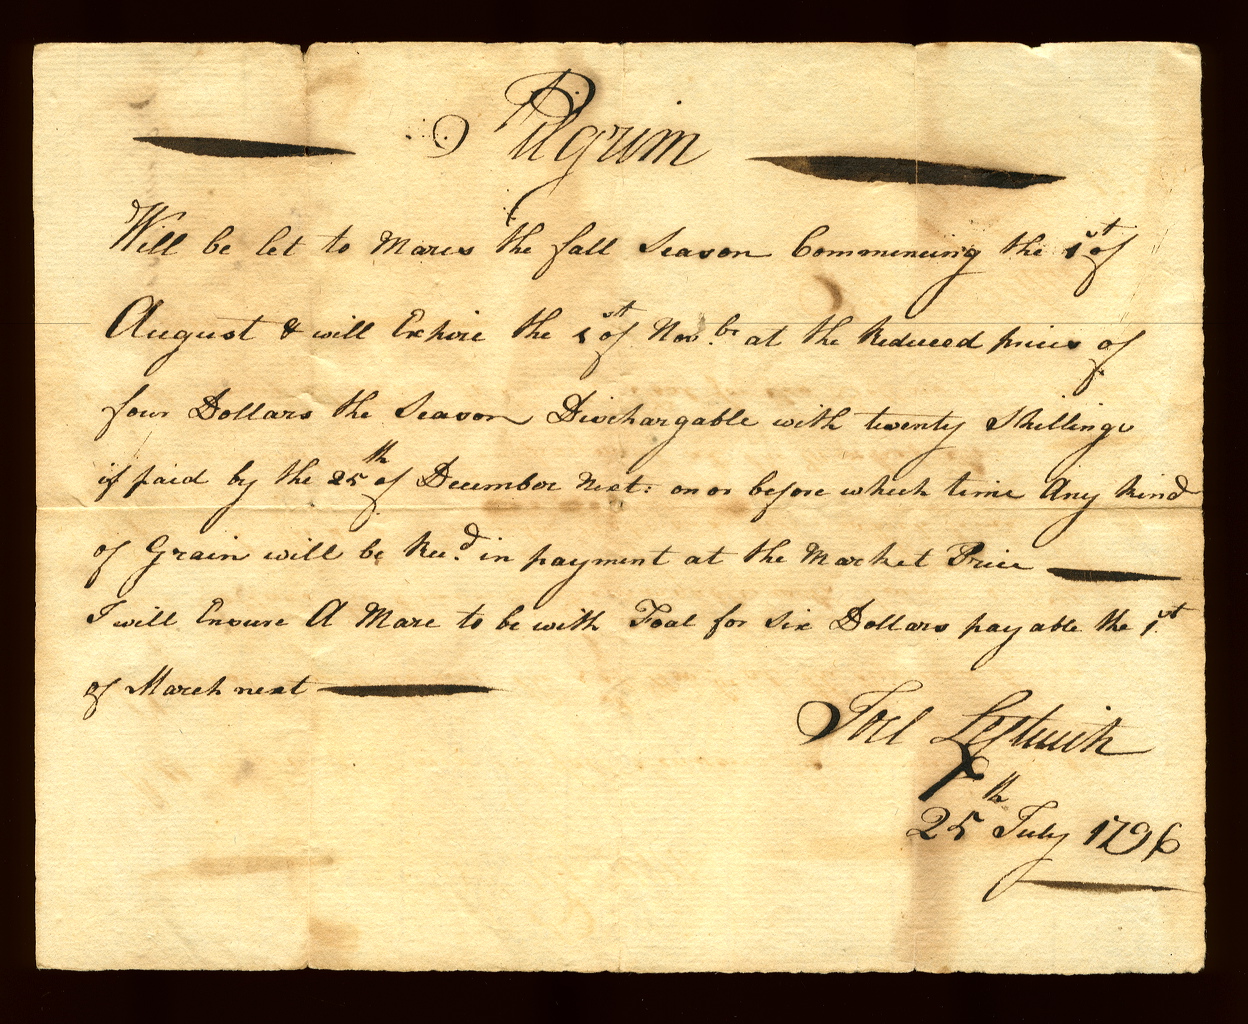 Pilgrim
Will be let to Mares the fall Season Commencing the 1st of
August & will Expire the 1st of Nov.br at the Reduced price of
four Dollars the Season Dischargable with twenty Shillings
if paid by the 25th of December Next: on or before which time Any kind
of Grain will be Rec.d in payment at the Market Price
I will Ensure A Mare to be with Foal for Six Dollars payable the 1st
of March next
Joel Leftwich
25th July 1796